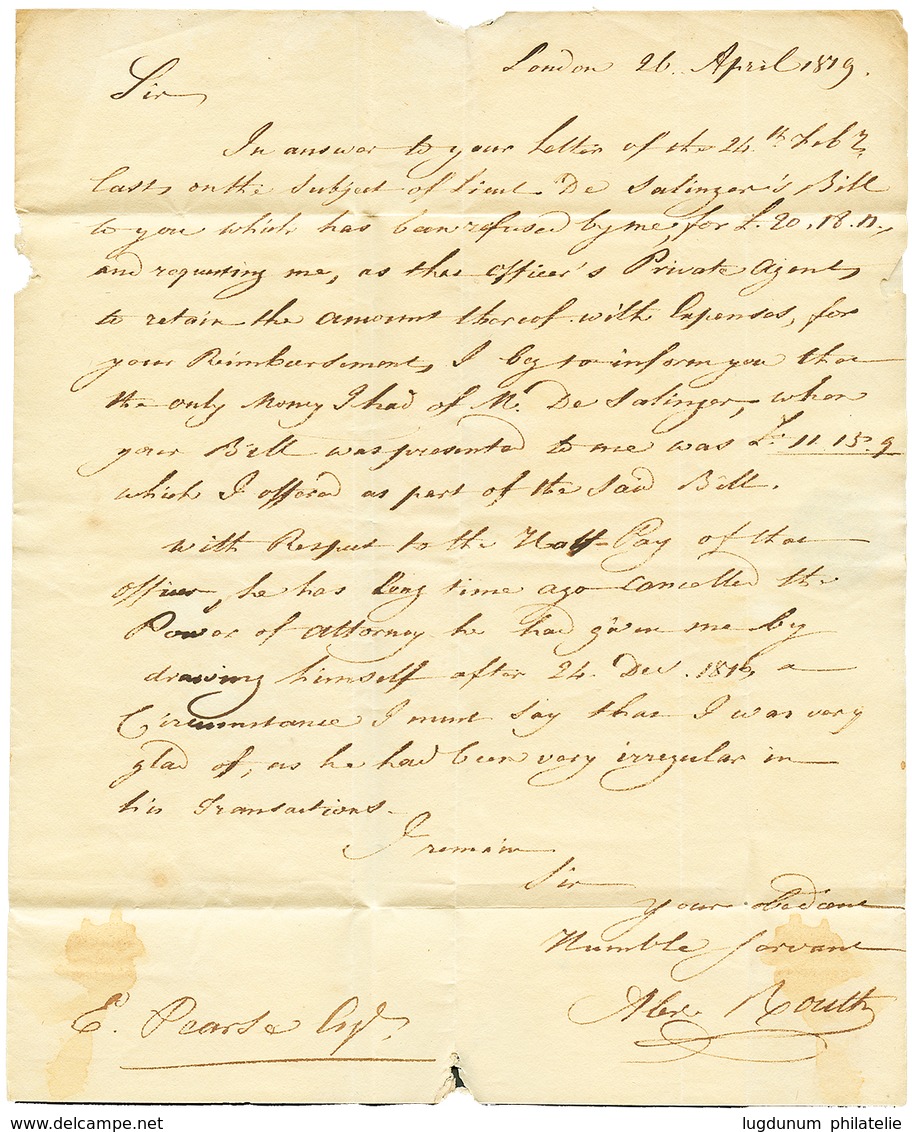 London 26. April 1819.
Sir
In answer to your letter of the 24th Feby
last, on the Subject of Lieut. De Salinger's Bill
to you which has been refused by me, for £.20.18.11,
and requesting me, as that Officer's Private Agent,
to retain the amount thereof with Expenses, for
your Reimbursement, I beg to inform you that
the only Money I had of Mr. De Salinger, when
your Bill was presented to me was £. 11.13.9
which I offered as part of the said Bill.
With Respect to the Half-Pay of that
officer, he has long time ago cancelled the
Power of Attorney he had given me by
drawing himself after 24. Dec. a
Circumstance I must say that I was very
glad of, as he had been very irregular in
his Transactions.
I remain
Sir
Your obedient
Humble Servant
Alex Routh
E. Pearse Esqr.
lugdunum philatelie